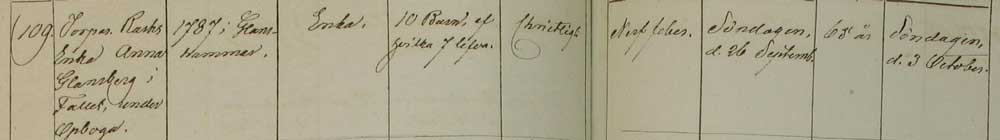 109.
Torpar. Rasks
Enka Anna
Glansberg i
Fallet, under
Opboga.
1787 i Glans-
hammar.
Enka.
10 Barn, af
hvilka 7 lefva.
Christligt
Nerffeber.
Söndagen,
d. 26 Septemb.
68 år
Söndagen,
d. 3 October.